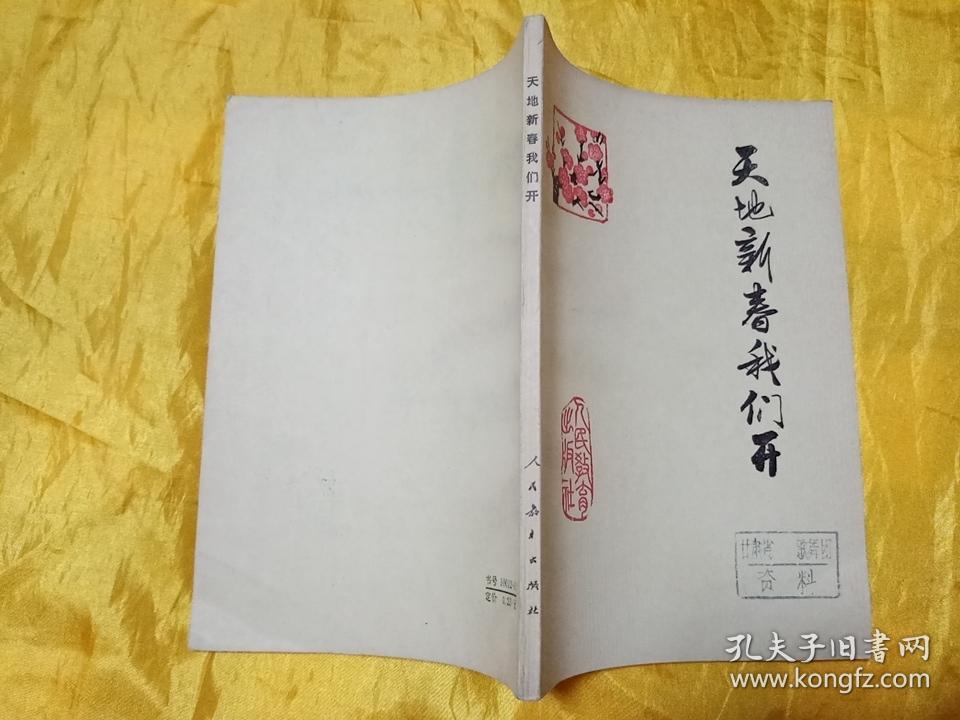 天地新春我们开
人民教育
出版社
甘肃省 歌舞团
资料
天地新春我们开
人民教育出版社
书号
定价
孔夫子旧书网
www.kongfz.com